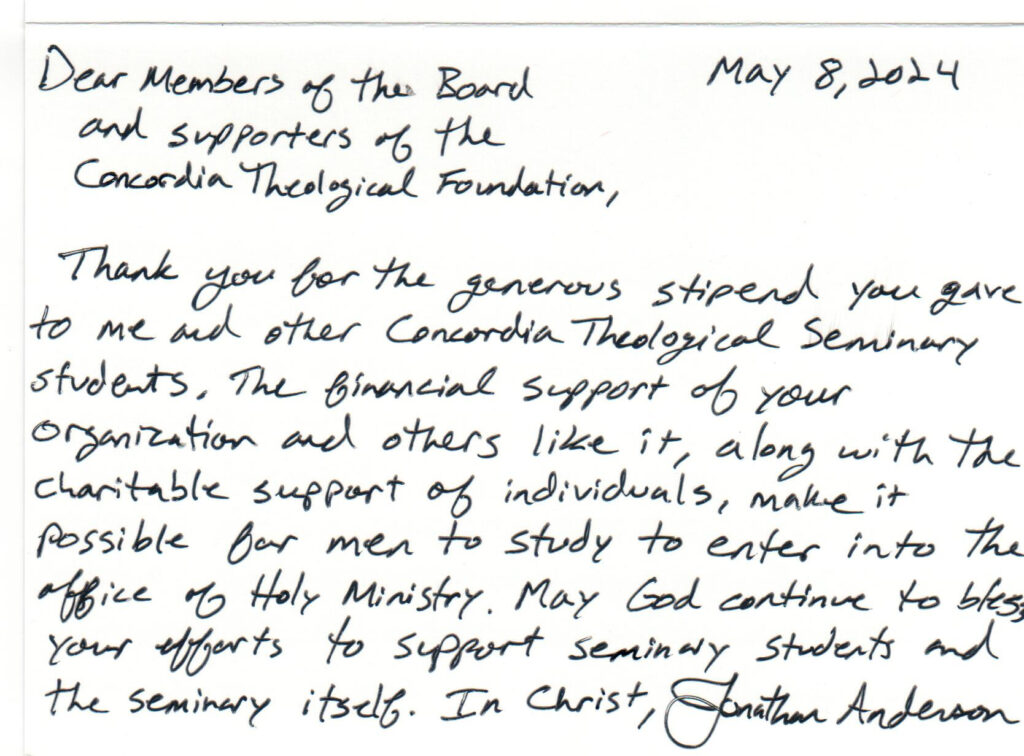 Dear Members of the Board May 8, 2024
and supporters of the
Concordia Theological Foundation,
Thank you for the generous stipend you gave
to me and other Concordia Theological Seminary
students. The financial support of your
organization and others like it, along with the
charitable support of individuals, make it
possible for men to study to enter into the
office of Holy Ministry. May God continue to bless
your efforts to support seminary students and
the seminary itself. In Christ, Jonathan Anderson